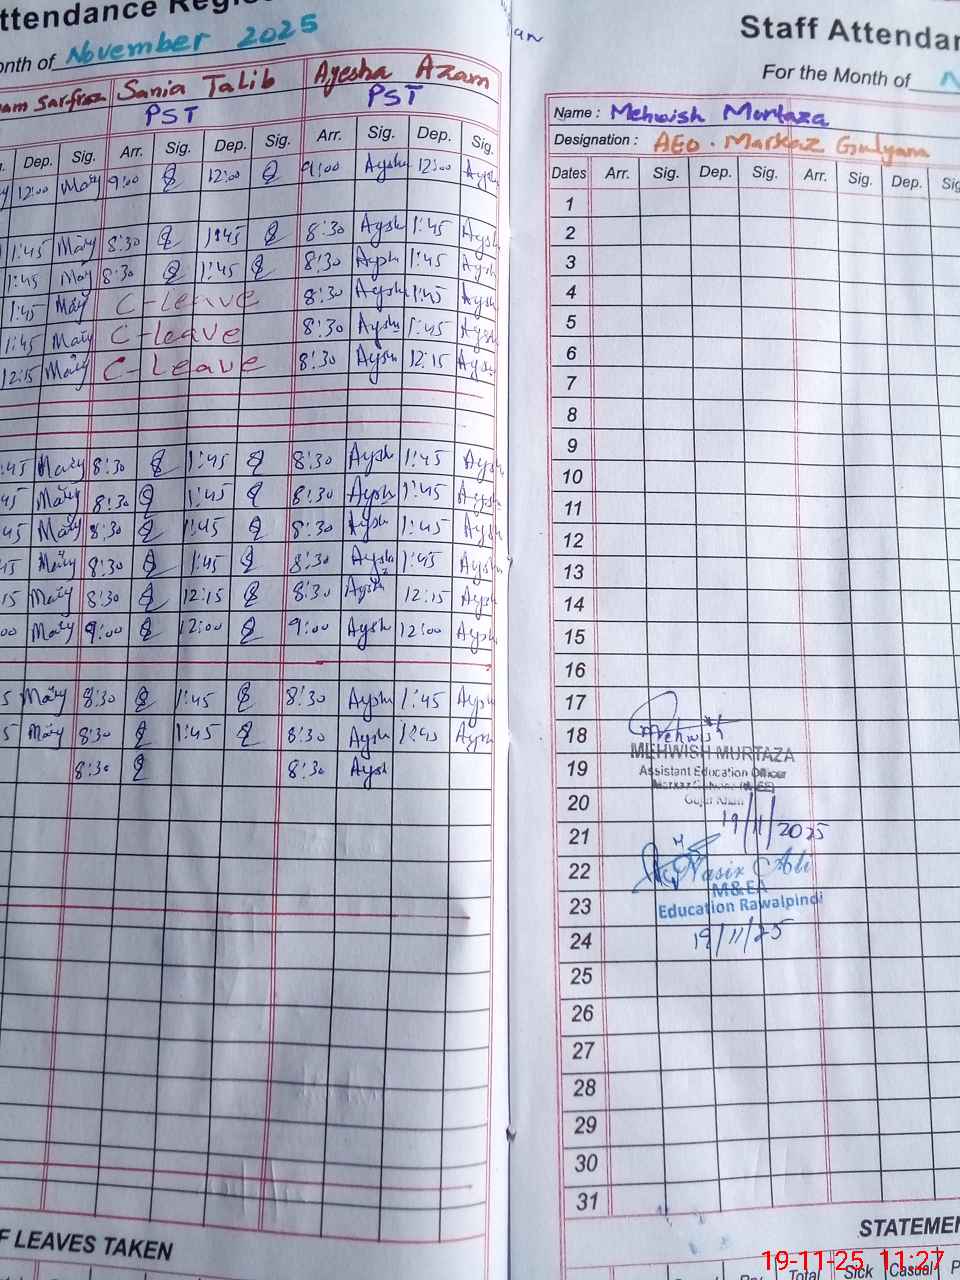 ttendance Regis
onth of November 2025
am Sarfraz Sania Talib Ayesha Azam
PST PST
Dep. Sig. Arr. Sig. Dep. Sig. Arr. Sig. Dep. Sig.
12:00 Mary 9:00 12:00 9:00 Aysh 12:00 Aysh
1:45 Mary 8:30 1:45 8:30 Aysh 1:45 Aysh
1:45 Mary 8:30 1:45 8:30 Aysh 1:45 Aysh
1:45 Mary C-Leave 8:30 Aysh 1:45 Aysh
1:45 Mary C-leave 8:30 Aysh 1:45 Aysh
12:15 Mary C-Leave 8:30 Aysh 12:15 Aysh
:45 Mary 8:30 1:45 8:30 Aysh 1:45 Aysh
45 Mary 8:30 1:45 8:30 Aysh 1:45 Aysh
45 Mary 8:30 1:45 8:30 Aysh 1:45 Aysh
45 Mary 8:30 1:45 8:30 Aysh 1:45 Aysh
15 Mary 8:30 12:15 8:30 Aysh 12:15 Aysh
00 Mary 9:00 12:00 9:00 Aysh 12:00 Aysh
5 Mary 8:30 1:45 8:30 Aysh 1:45 Aysh
5 Mary 8:30 1:45 8:30 Aysh 1:45 Aysh
8:30 8:30 Aysh
F LEAVES TAKEN
Staff Attendan
For the Month of N
Name : Mehwish Murtaza
Designation : AEO. Markaz Gulyana
Dates Arr. Sig. Dep. Sig. Arr. Sig. Dep. Sig
1
2
3
4
5
6
7
8
9
10
11
12
13
14
15
16
17
18 Mehwish
MEHWISH MURTAZA
19 Assistant Education Officer
20 Gujar Khan
19/11/2025
21
22 Nasir Ali
M&EA
23 Education Rawalpindi
24 19/11/25
25
26
27
28
29
30
31
STATEMEN
Total Sick Casual P
19-11-25 11:27